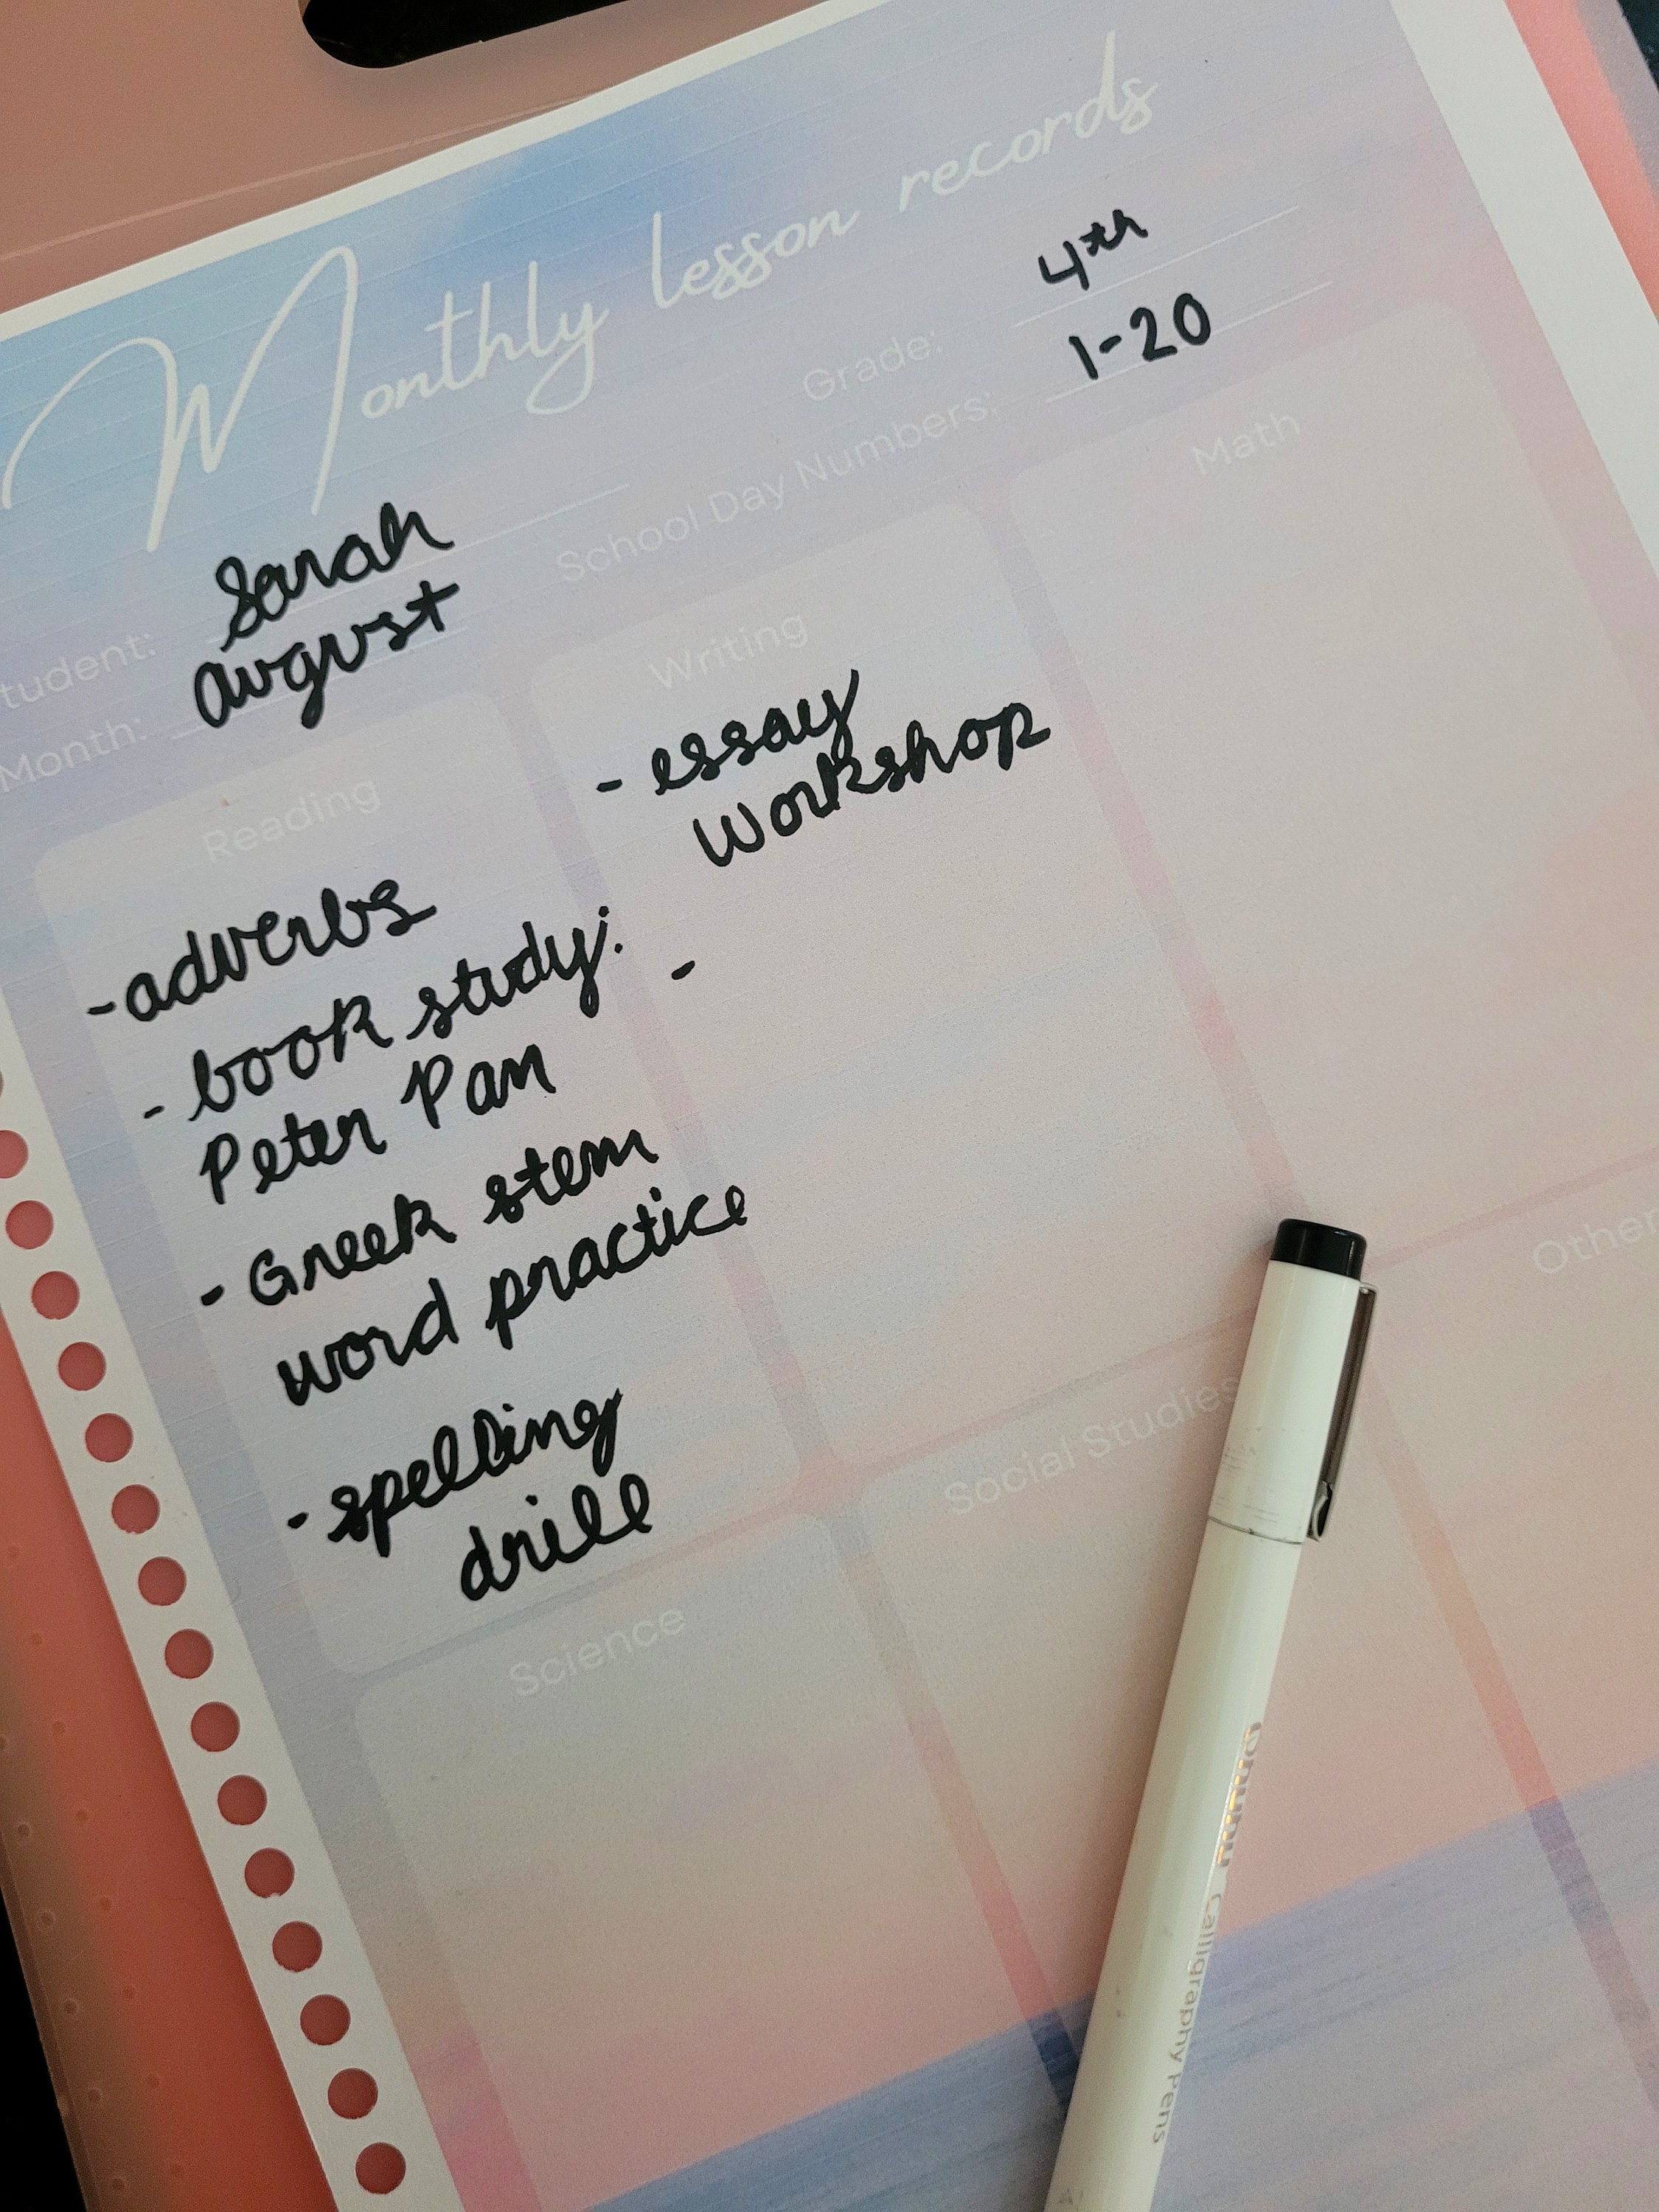 Monthly lesson records
Grade: 4th
School Day Numbers: 1-20
tudent: Sarah
Month: august
Reading
- adverbs
- book study:
Peter Pan
- Greek stem
word practice
- spelling
drill
Writing
- essay
Workshop
-
Math
Science
Social Studies
Other
Calligraphy Pens